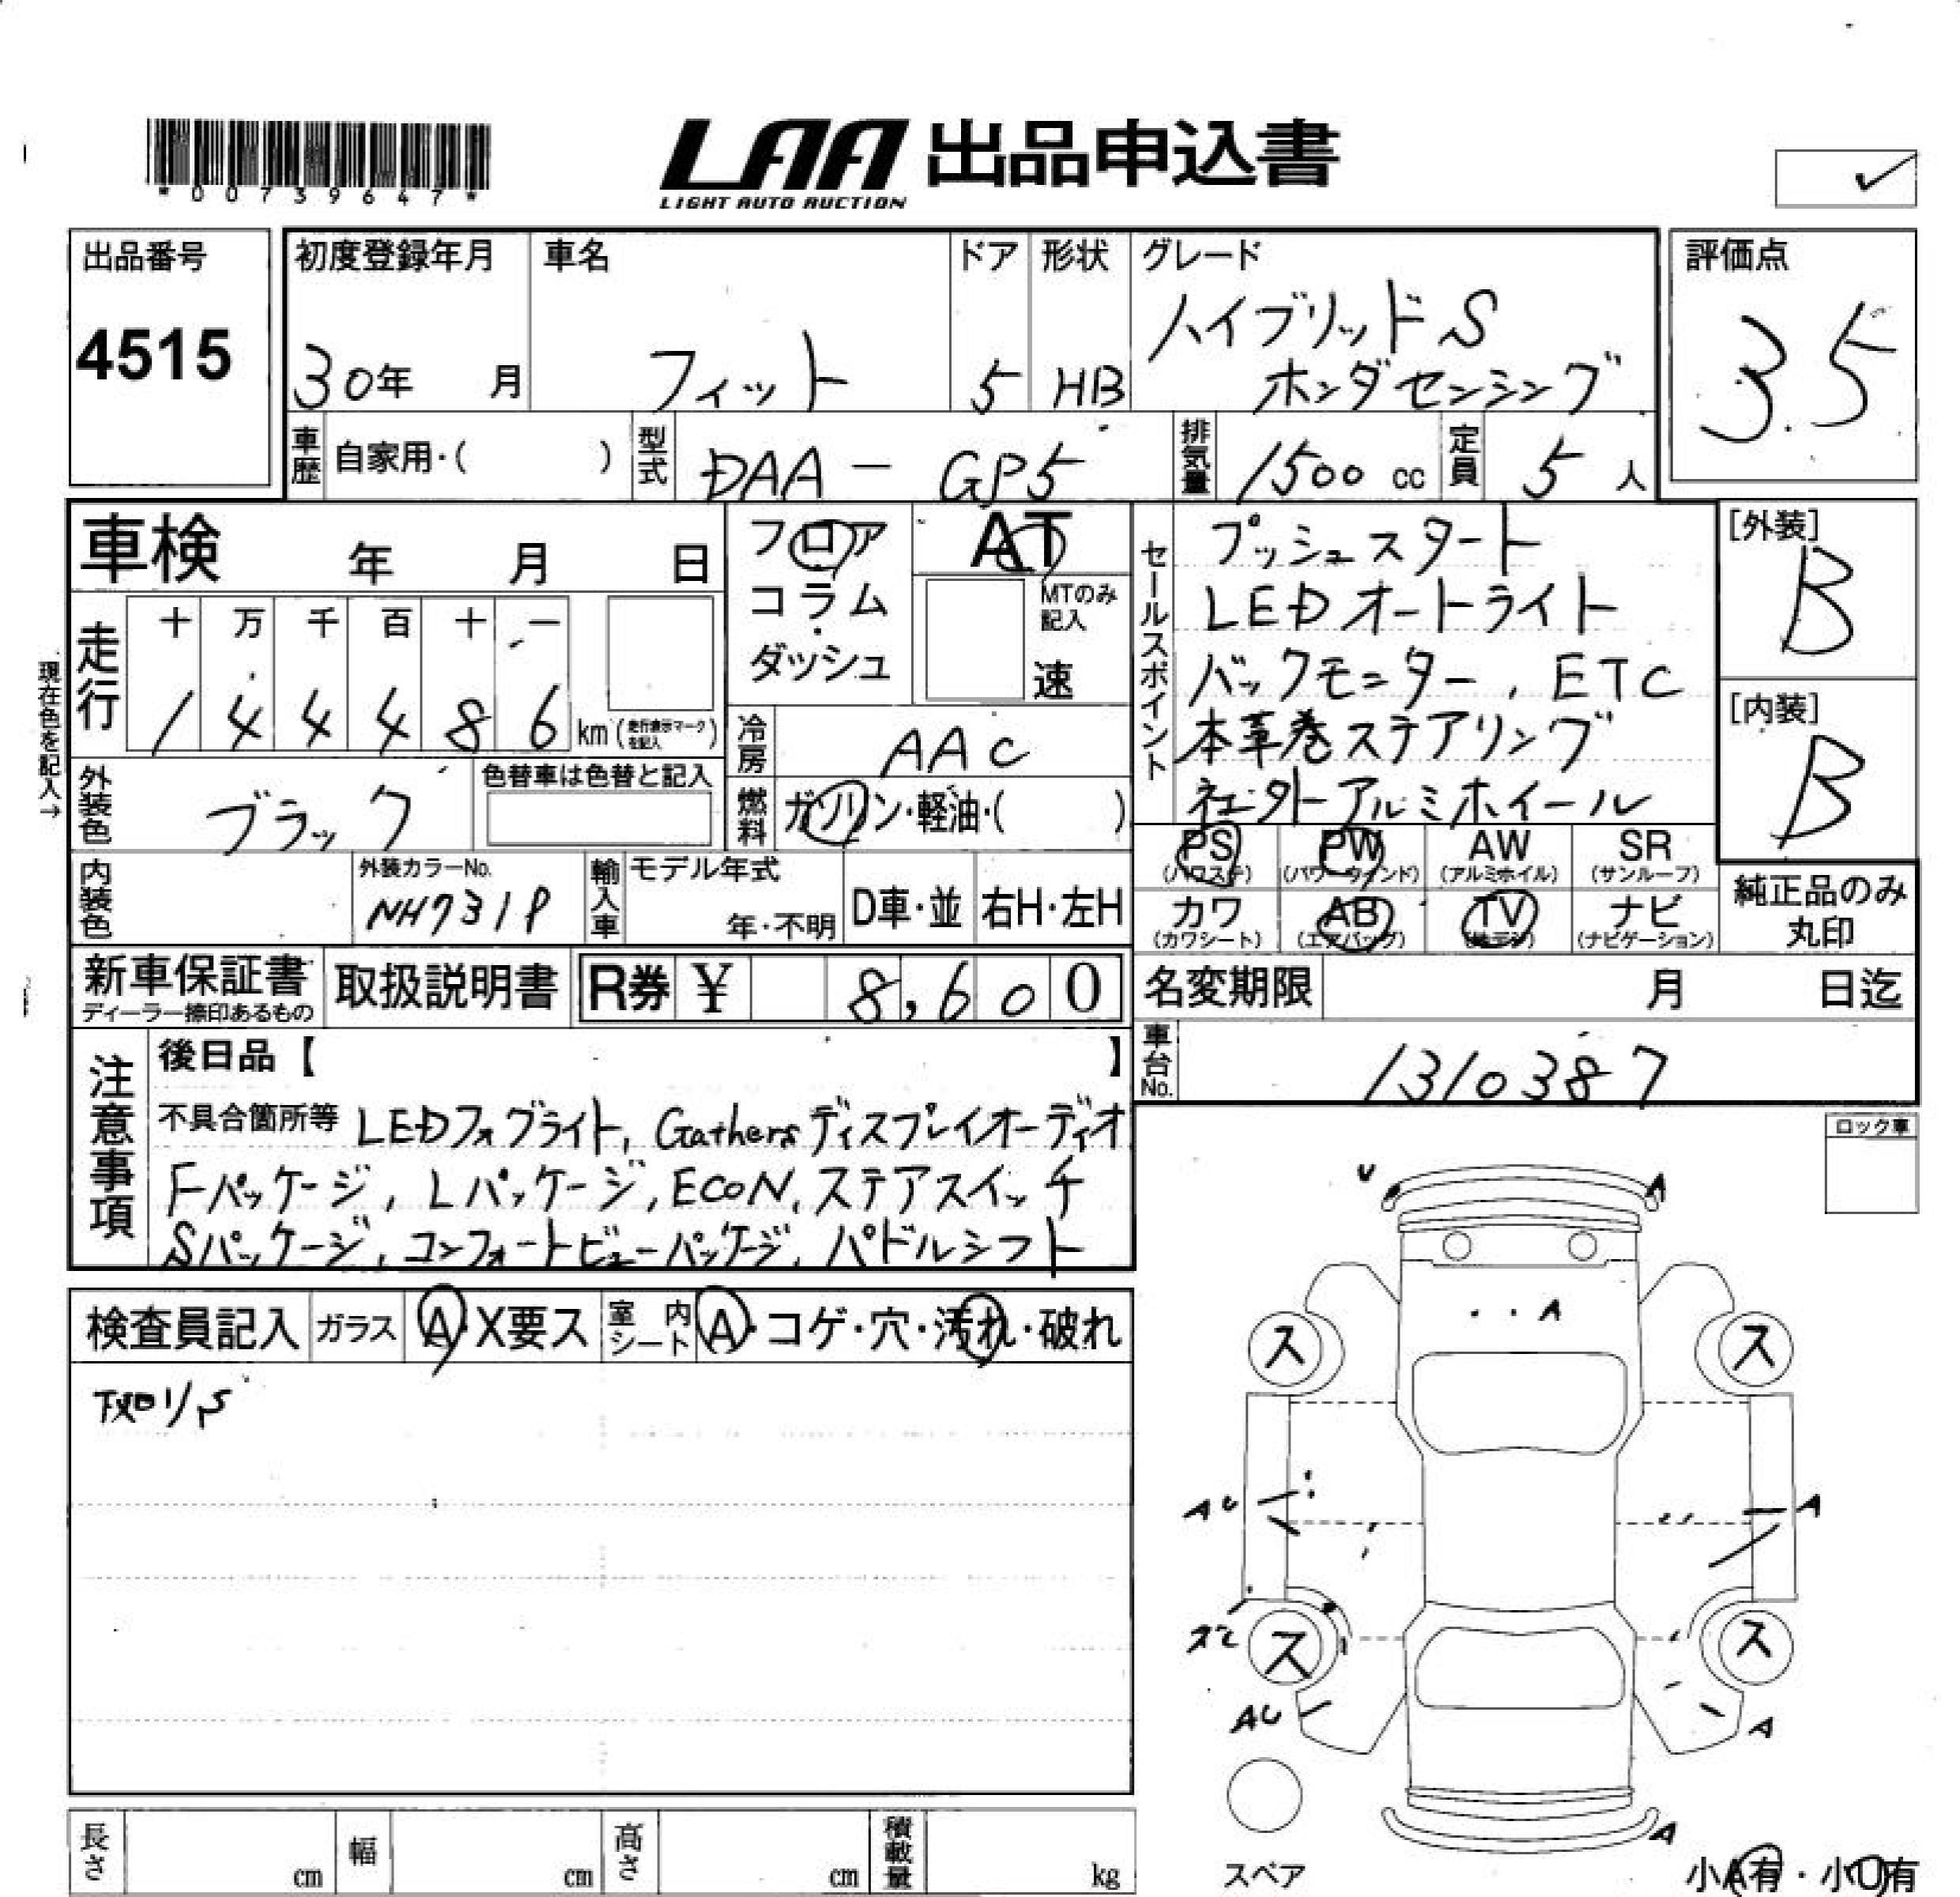 *00739647*
LAA 出品申込書
LIGHT AUTO AUCTION
出品番号
4515
初度登録年月
30年 月
車名
フィット
ドア
5
形状
HB
グレード
ハイブリッドS
ホンダセンシング
評価点
3.5
車歴 自家用・( )
型式 DAA - GP5
排気量 1500 cc
定員 5 人
車検 年 月 日
走行
十 万 千 百 十 一
1 4 4 4 8 6 km (走行表示マークを記入)
現在色を記入→
フロア
コラム
・
ダッシュ
AT
MTのみ記入
速
冷房 AAC
燃料 ガソリン・軽油・( )
セールスポイント
プッシュスタート
LEDオートライト
バックモニター, ETC
本革巻ステアリング
社外アルミホイール
[外装]
B
[内装]
B
外装色 ブラック
色替車は色替と記入
内装色
外装カラーNo.
NH731P
輸入車
モデル年式
年・不明
D車・並
右H・左H
PS (パワステ)
PW (パワーウインド)
AW (アルミホイル)
SR (サンルーフ)
カワ (カワシート)
AB (エアバッグ)
TV (地デジ)
ナビ (ナビゲーション)
純正品のみ
丸印
新車保証書
ディーラー捺印あるもの
取扱説明書
R券 ¥ 8,600
名変期限 月 日迄
車台No. 1310387
注意事項
後日品【 】
不具合箇所等 LEDフォグライト, Gathersディスプレイオーディオ
Fパッケージ, Lパッケージ, ECON, ステアスイッチ
Sパッケージ, コンフォートビューパッケージ, パドルシフト
ロック車
検査員記入
ガラス A・X要ス
室内シート A・コゲ・穴・汚れ・破れ
U
A
A
ス
ス
AU
A
ス
ス
AU
A
A
スペア
小A有・小U有
長さ cm
幅 cm
高さ cm
積載量 kg